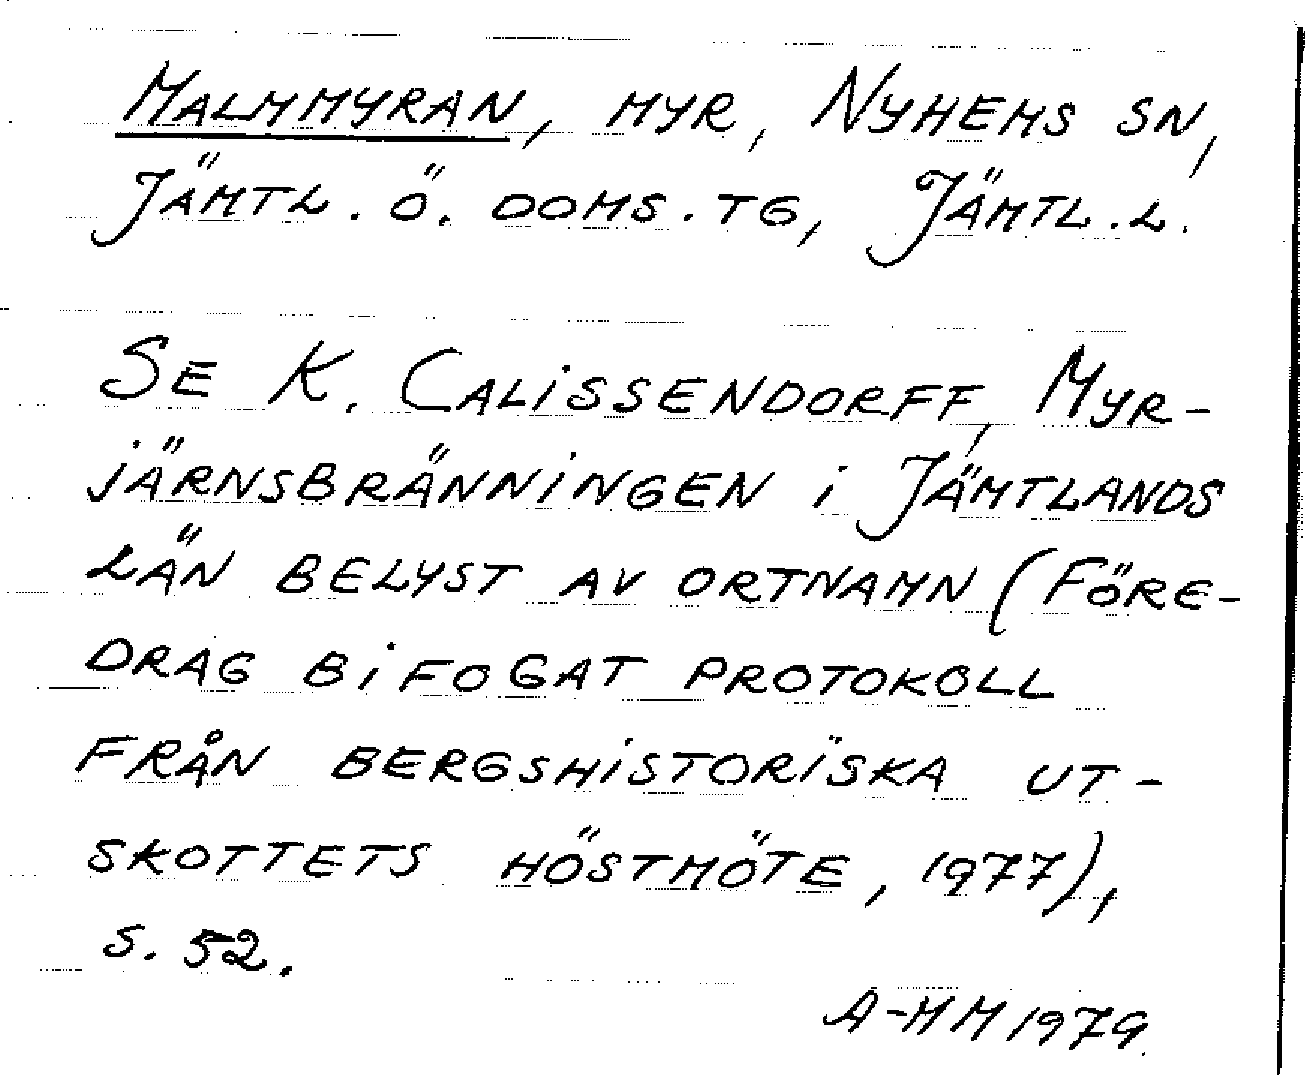 MALMMYRAN, MYR, NYHEMS SN,
JÄMTL. Ö. DOMS. TG, JÄMTL. L.
SE K. CALISSENDORFF, MYR-
JÄRNSBRÄNNINGEN I JÄMTLANDS
LÄN BELYST AV ORTNAMN (FÖRE-
DRAG BIFOGAT PROTOKOLL
FRÅN BERGSHISTORISKA UT-
SKOTTETS HÖSTMÖTE, 1977),
S. 52.
A-MM 1979.